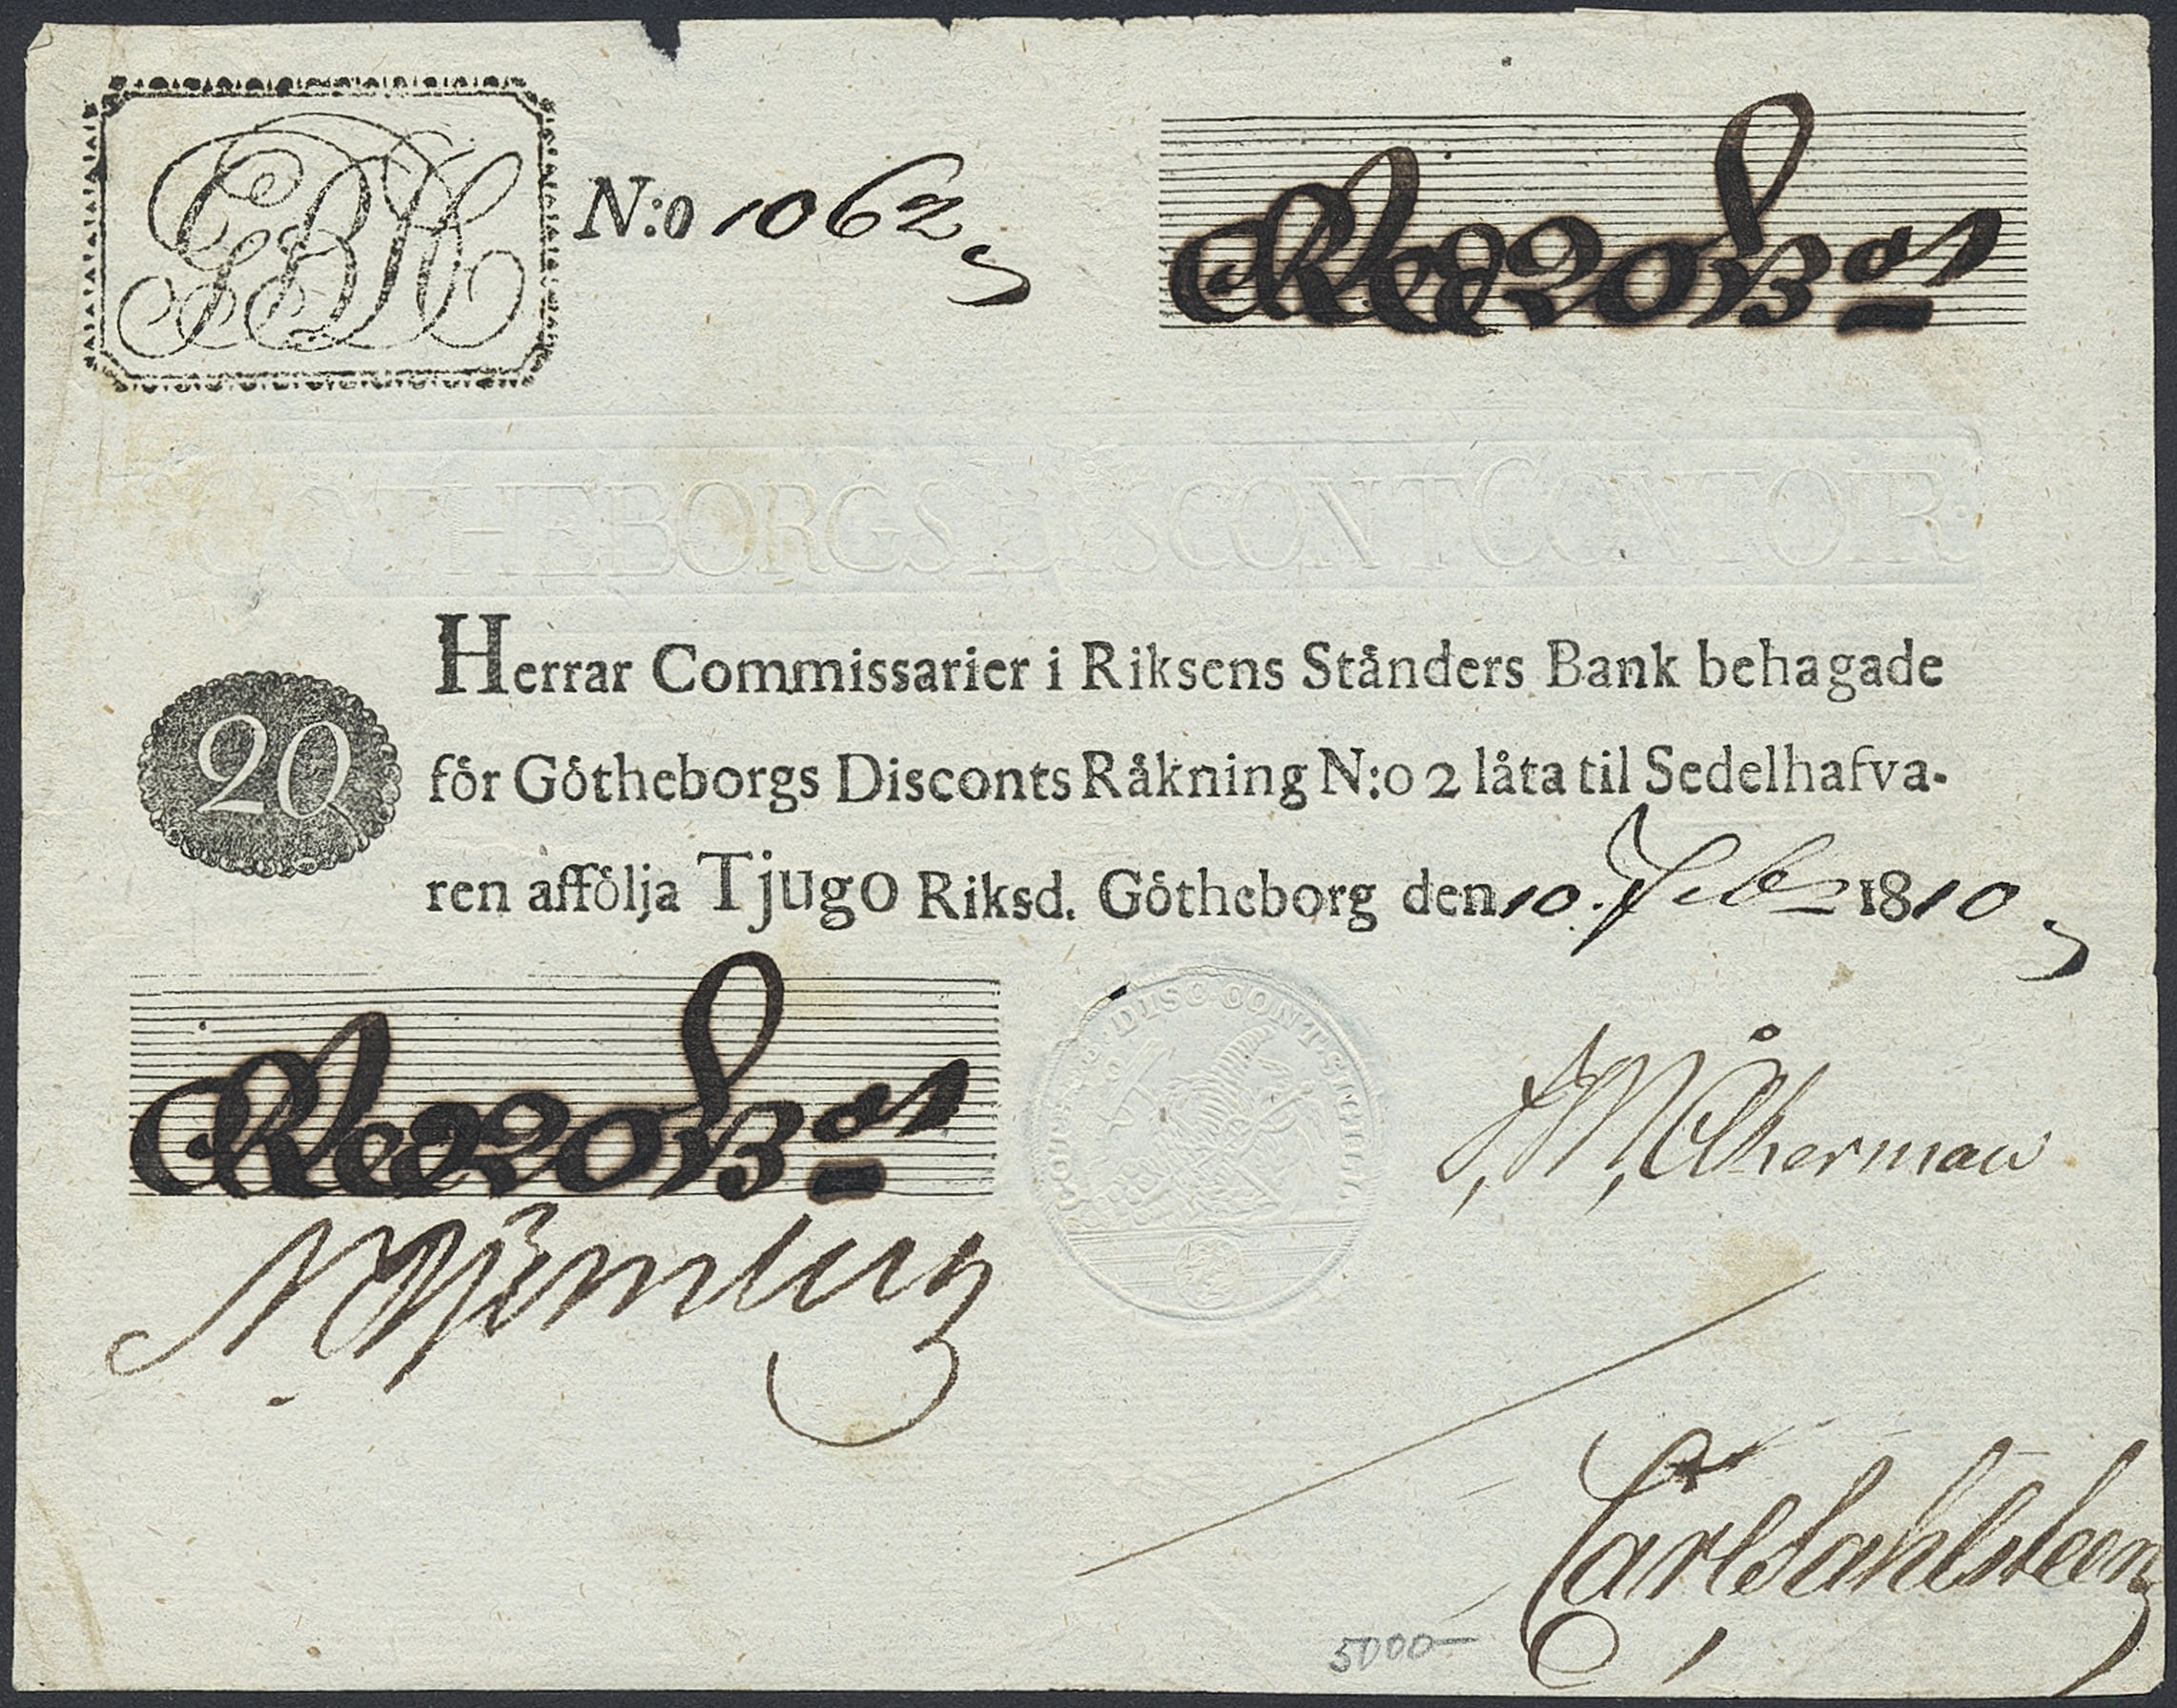 N:o 1062
GOTHEBORGS DISCONTCONTOIR
Herrar Commissarier i Riksens Ständers Bank behagade
20
för Götheborgs Disconts Räkning N:o 2 låta til Sedelhafva-
ren afföļja Tjugo Riksd. Götheborg den 10. Feb 1810
DISCONT
J, M, Åkerman
Carl Dahlsteen
5000-